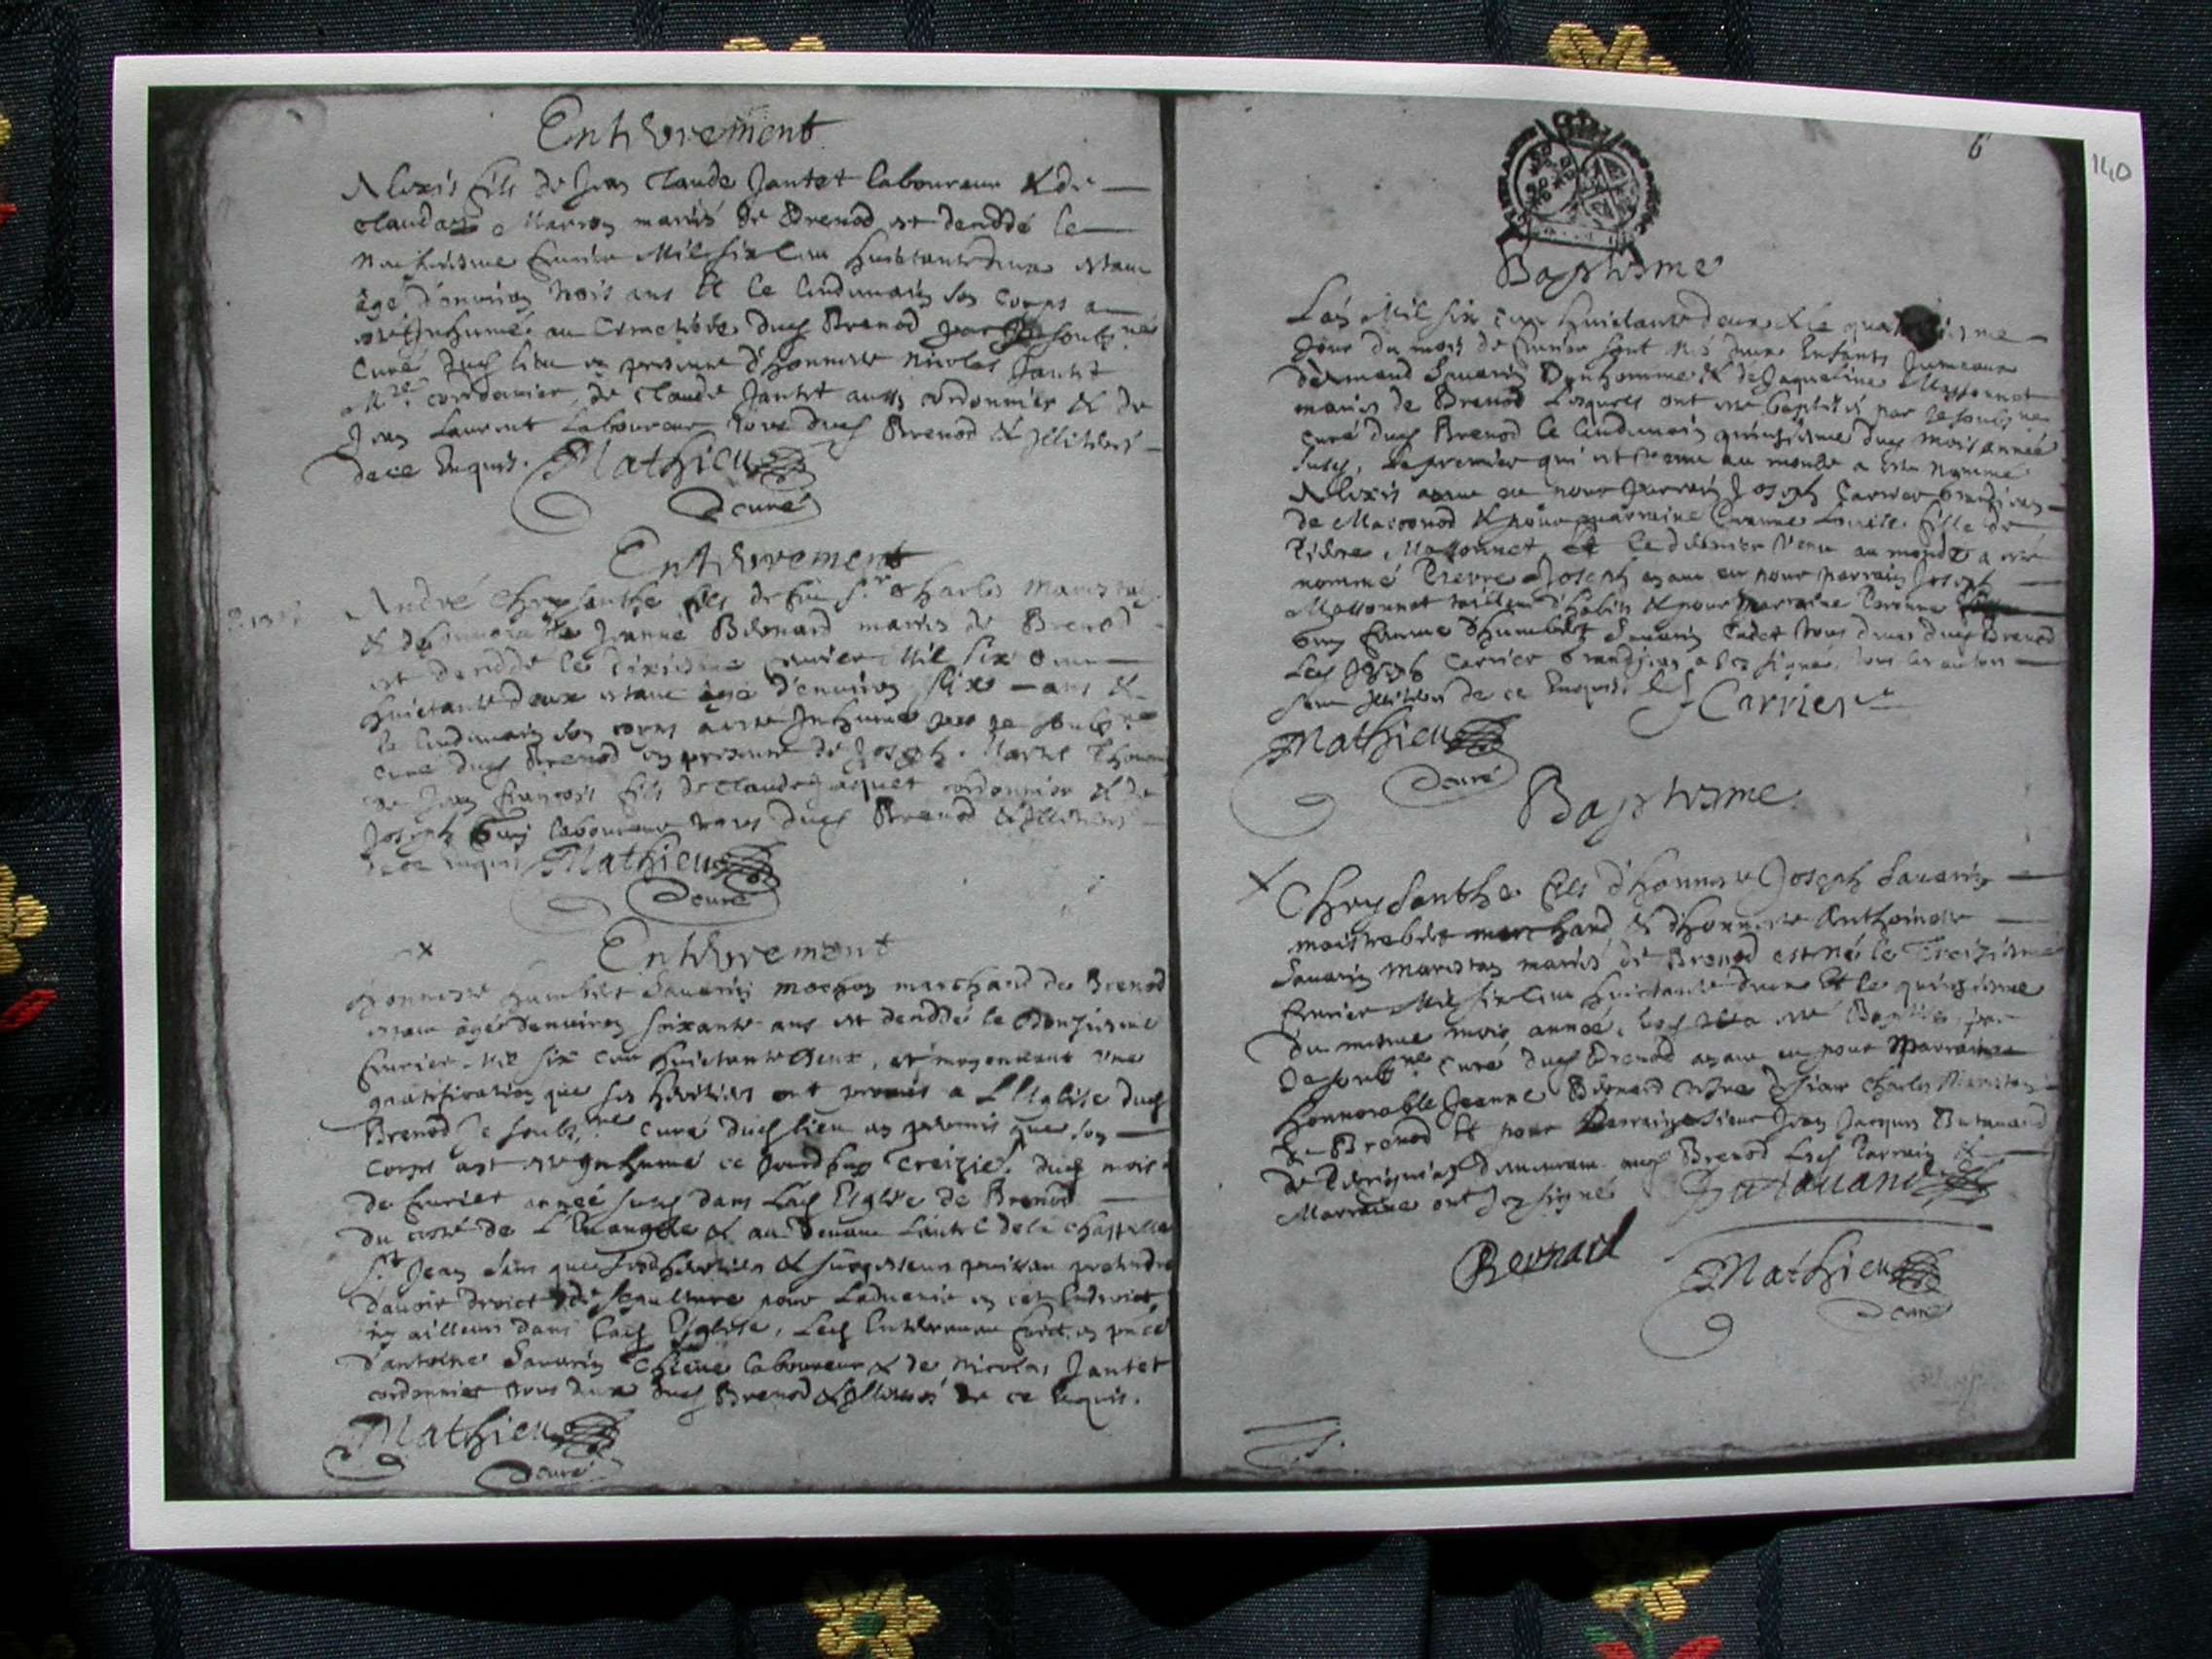 Enterrement
Alexis fils de Jean Claude Jantet laboureur & de
Claudaz Marron mariés de Brenod est deceddé le
huictante deux estant
âgé d'environ trois ans et le lendemain son corps a
esté Inhumé au Cimetière dud Brenod par Je soubs.né
Curé dud lieu en presence d'honneste Nicolas Jantet
M.re cordonier, de Claude Jantet aussi cordonnier & de
Jean Laurent Laboureur tous dud Brenod & illiterés
de ce Enquis. Mathieu
Curé
Enterrement
André Chrysanthe fils de feu S.r Charles Maristaz
& d'honnorable Jeanne Bernard mariés de Brenod
est deceddé le dixiesme fevrier Mil six cens
huictante deux estant âgé d'environ six ans &
le lendemain son corps a esté Inhumé par Je soubs.né
curé dud Brenod en presence de Joseph Marne
de Jean François fils de Claude Jacquet cordonnier & de
Joseph Guy laboureur tous dud Brenod & illiterés
de ce enquis Mathieu
Curé
Enterrement
Honneste Humbert Savarin mochon marchand de Brenod
estant âgé d'environ soixante ans est deceddé le douziesme
fevrier Mil six cens huictante deux, et moyennant une
gratification que ses héritiers ont promis a L'Eglise dud
Brenod Je soubs.né curé dud lieu ay permis que son
corps aye esté Inhumé ce jourdhuy treizie. dud mois
de fevrier année susd dans Lad Eglise de Brenod
du costé de L'Evangile & au devant L'autel de la chappelle
S.t Jean sans que sesd heritiers & successeurs puissent pretendre
d'avoir droict de sepulture pour Ladvenir en cet Endroict,
ny ailleurs dans Lad Eglise, Led Enterrement faict en p.nce
d'antoine Savarin laboureur & de Nicolas Jantet
cordonnier tous deux dud Brenod & illiterés de ce Enquis.
Mathieu
Curé
6
140
Baptesme
L'an Mil six cens huictante deux & le
jour du mois de fevrier sont nés deux Enfants Jumeaux
Savarin Bonhomme & de Jaqueline Massonnet
mariés de Brenod Lesquels ont esté baptisés par Je soubs.né
curé dud Brenod le lendemain quinziesme dud mois année
susd, Le premier qui est venu au monde a esté nommé
Alexis ayant eu pour parrain Joseph Carrier Grandjean
de Maconod & pour marraine fille de
Massonnet et le dernier venu au monde a esté
nommé Pierre Joseph ayant eu pour parrain Joseph
Massonnet tailleur d'habits & pour Marraine
Guy femme d'humbert Savarin Cadet tous deux dud Brenod
Led Joseph Carrier Grandjean a icy signé, tous les autres
sont illiterés de ce Enquis. J Carrier
Mathieu
Curé
Baptesme
Chrysanthe fils d'honneste Joseph Savarin
marchand & d'honneste Anthoinette
Savarin Maristaz mariés de Brenod est né le Treiziesme
fevrier Mil six cens huictante deux et le quinziesme
du mesme mois, année, a esté Baptisé par
Je soubs.né curé dud Brenod ayant eu pour Marraine
honnorable Jeanne Bernard vefve de sieur Charles Maristaz
de Brenod et pour Parrain sieur Jean Jacques Butavand
demeurant aud Brenod Lesd Parrain &
Marraine ont Icy signé Butavand
Bernard
Mathieu
Curé